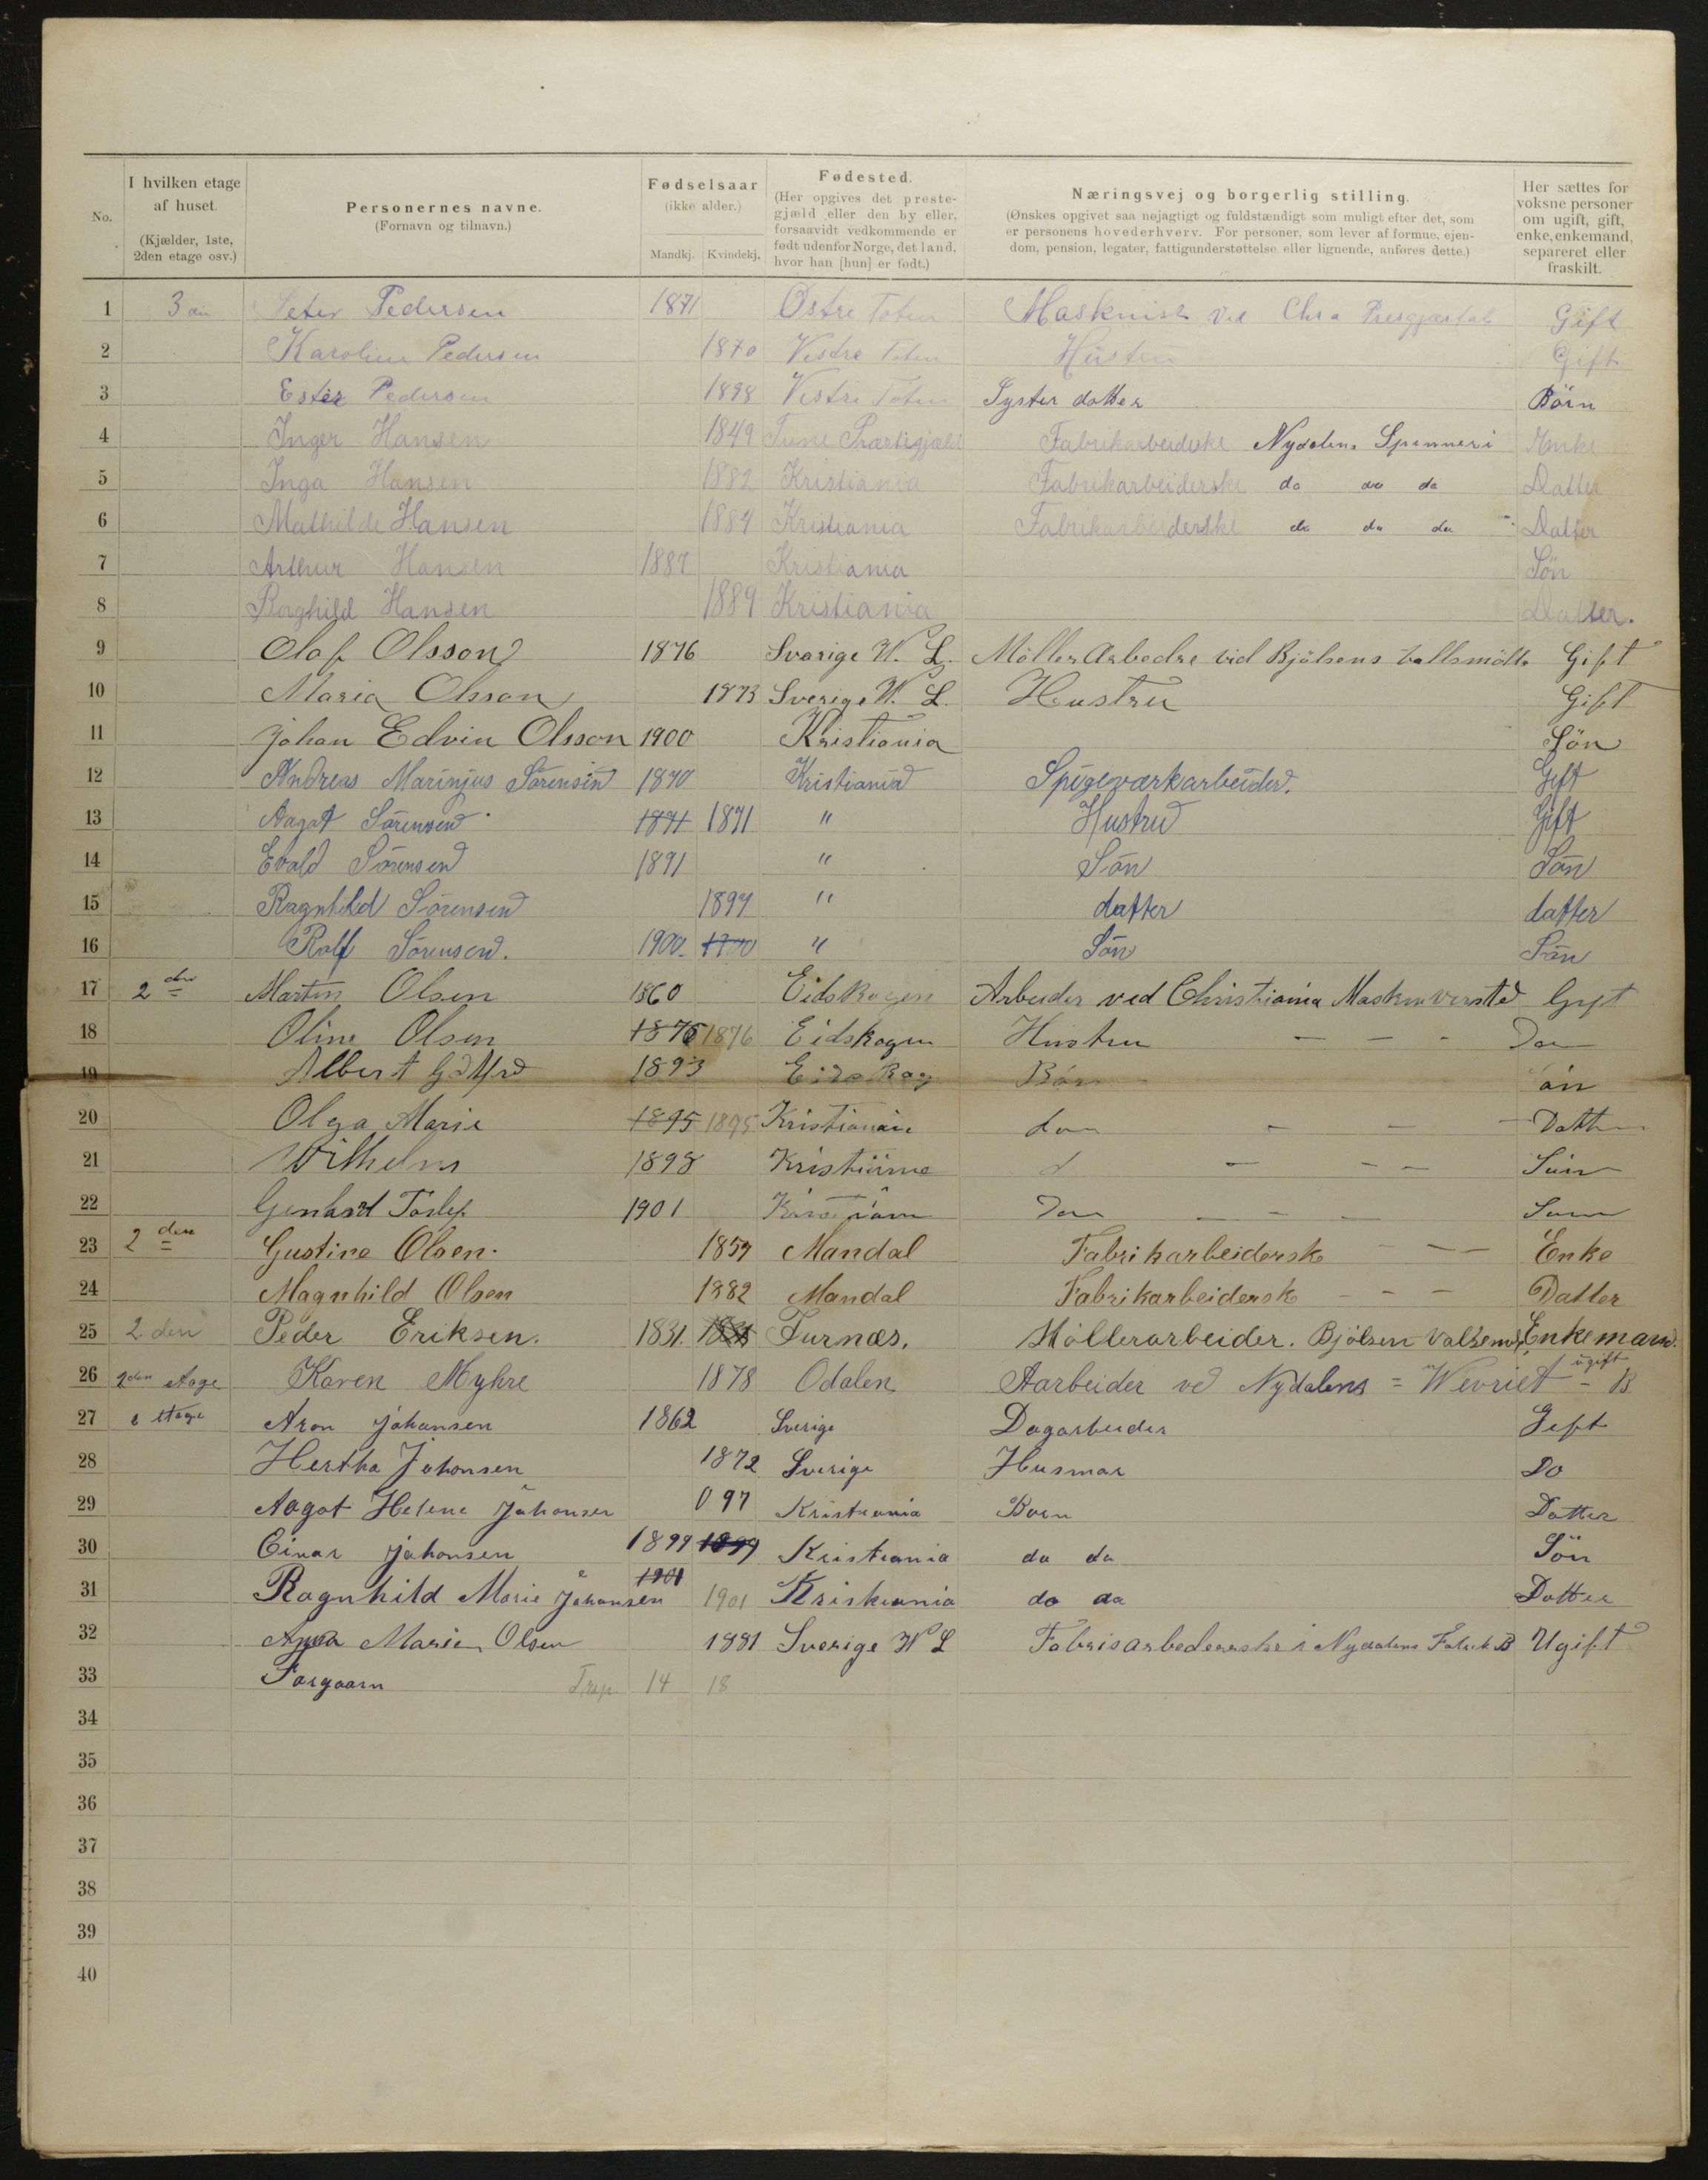 No. I hvilken etage af huset. (Kjælder, 1ste, 2den etage osv.) Personernes navne. (Fornavn og tilnavn.) Fødselsaar (ikke alder.) Mandkj. Kvindekj. Fødested. (Her opgives det prestegjæld eller den by eller, forsaavidt vedkommende er født udenfor Norge, det land, hvor han [hun] er født.) Næringsvej og borgerlig stilling. (Ønskes opgivet saa nøjagtigt og fuldstændigt som muligt efter det, som er personens hovederhverv. For personer, som lever af formue, ejendom, pension, legater, fattigunderstøttelse eller lignende, anføres dette.) Her sættes for voksne personer om ugift, gift, enke, enkemand, separeret eller fraskilt.
1 Peter Pedersen 1871 Østre Toten Maskinist Chra Gift
2 Karoline Pedersen 1870 Vestre Toten Hustru Gift
3 Ester Pedersen 1898 Vestre Toten Syster datter Börn
4 Inger Hansen 1849 Tune Præstegjæld Fabrikarbeiderske Nydalens Spinneri Enke
5 Inga Hansen 1882 Kristiania Fabrikarbeiderske do do do Datter
6 Mathilde Hansen 1884 Kristiania Fabrikarbeiderske do do do Datter
7 Arthur Hansen 1887 Kristiania Sön
8 Borghild Hansen 1889 Kristiania Datter.
9 Olof Olsson 1876 Svarige W. L. Möller Arbedre vid Bjölsens Gift
10 Maria Olsson 1873 Sverige W. L. Hustru Gift
11 Johan Edvin Olsson 1900 Kristiania Sön
12 Andreas Marinjus Sörensen 1870 Kristiania Spigeværkarbeider. Gift
13 Aagot Sörensen 1871 1871 " Hustru Gift
14 Evald Sörensen 1891 " Sön Sön
15 Ragnhild Sörensen 1897 " datter datter
16 Rolf Sörensen. 1900. " Sön Sön
17 2 den Martin Olsen 1860 Eidskogen Arbeider ved Christiania Gift
18 Oline Olsen 1876 1876 Eidskogen Hustru - - -
19 Albert 1893 Börn
20 Olga Marie 1895 1895 Kristiania - - -
21 Wilhelm 1898 - - - Sön
22 1901 - - -
23 2 den Gustine Olsen. Mandal Fabrikarbeidersk - - - Enke
24 Magnhild Olsen 1882 Mandal Fabrikarbeidersk - - - Datter
25 2 den Peder Eriksen. 1831. Furnæs. Möllerarbeider. Bjölsen Enkemand.
26 2den Etage Karen Myhre 1878 Odalen Aarbeider ved Nydalens = - ugift B
27 Etage Aron Johansen 1862 Sverige Dagarbeider Gift
28 Hertha Johansen 1872 Sverige Husmor Do
29 Aagot Helene Johansen 097 Kristiania Barn Datter
30 Einar Johansen 1899 1899 Kristiania do do Sön
31 Ragnhild Marie Johansen 1901 1901 Kristiania do do Datter
32 Marie Olsen 1881 Sverige W L Nydalens B Ugift
33 14 18
34
35
36
37
38
39
40